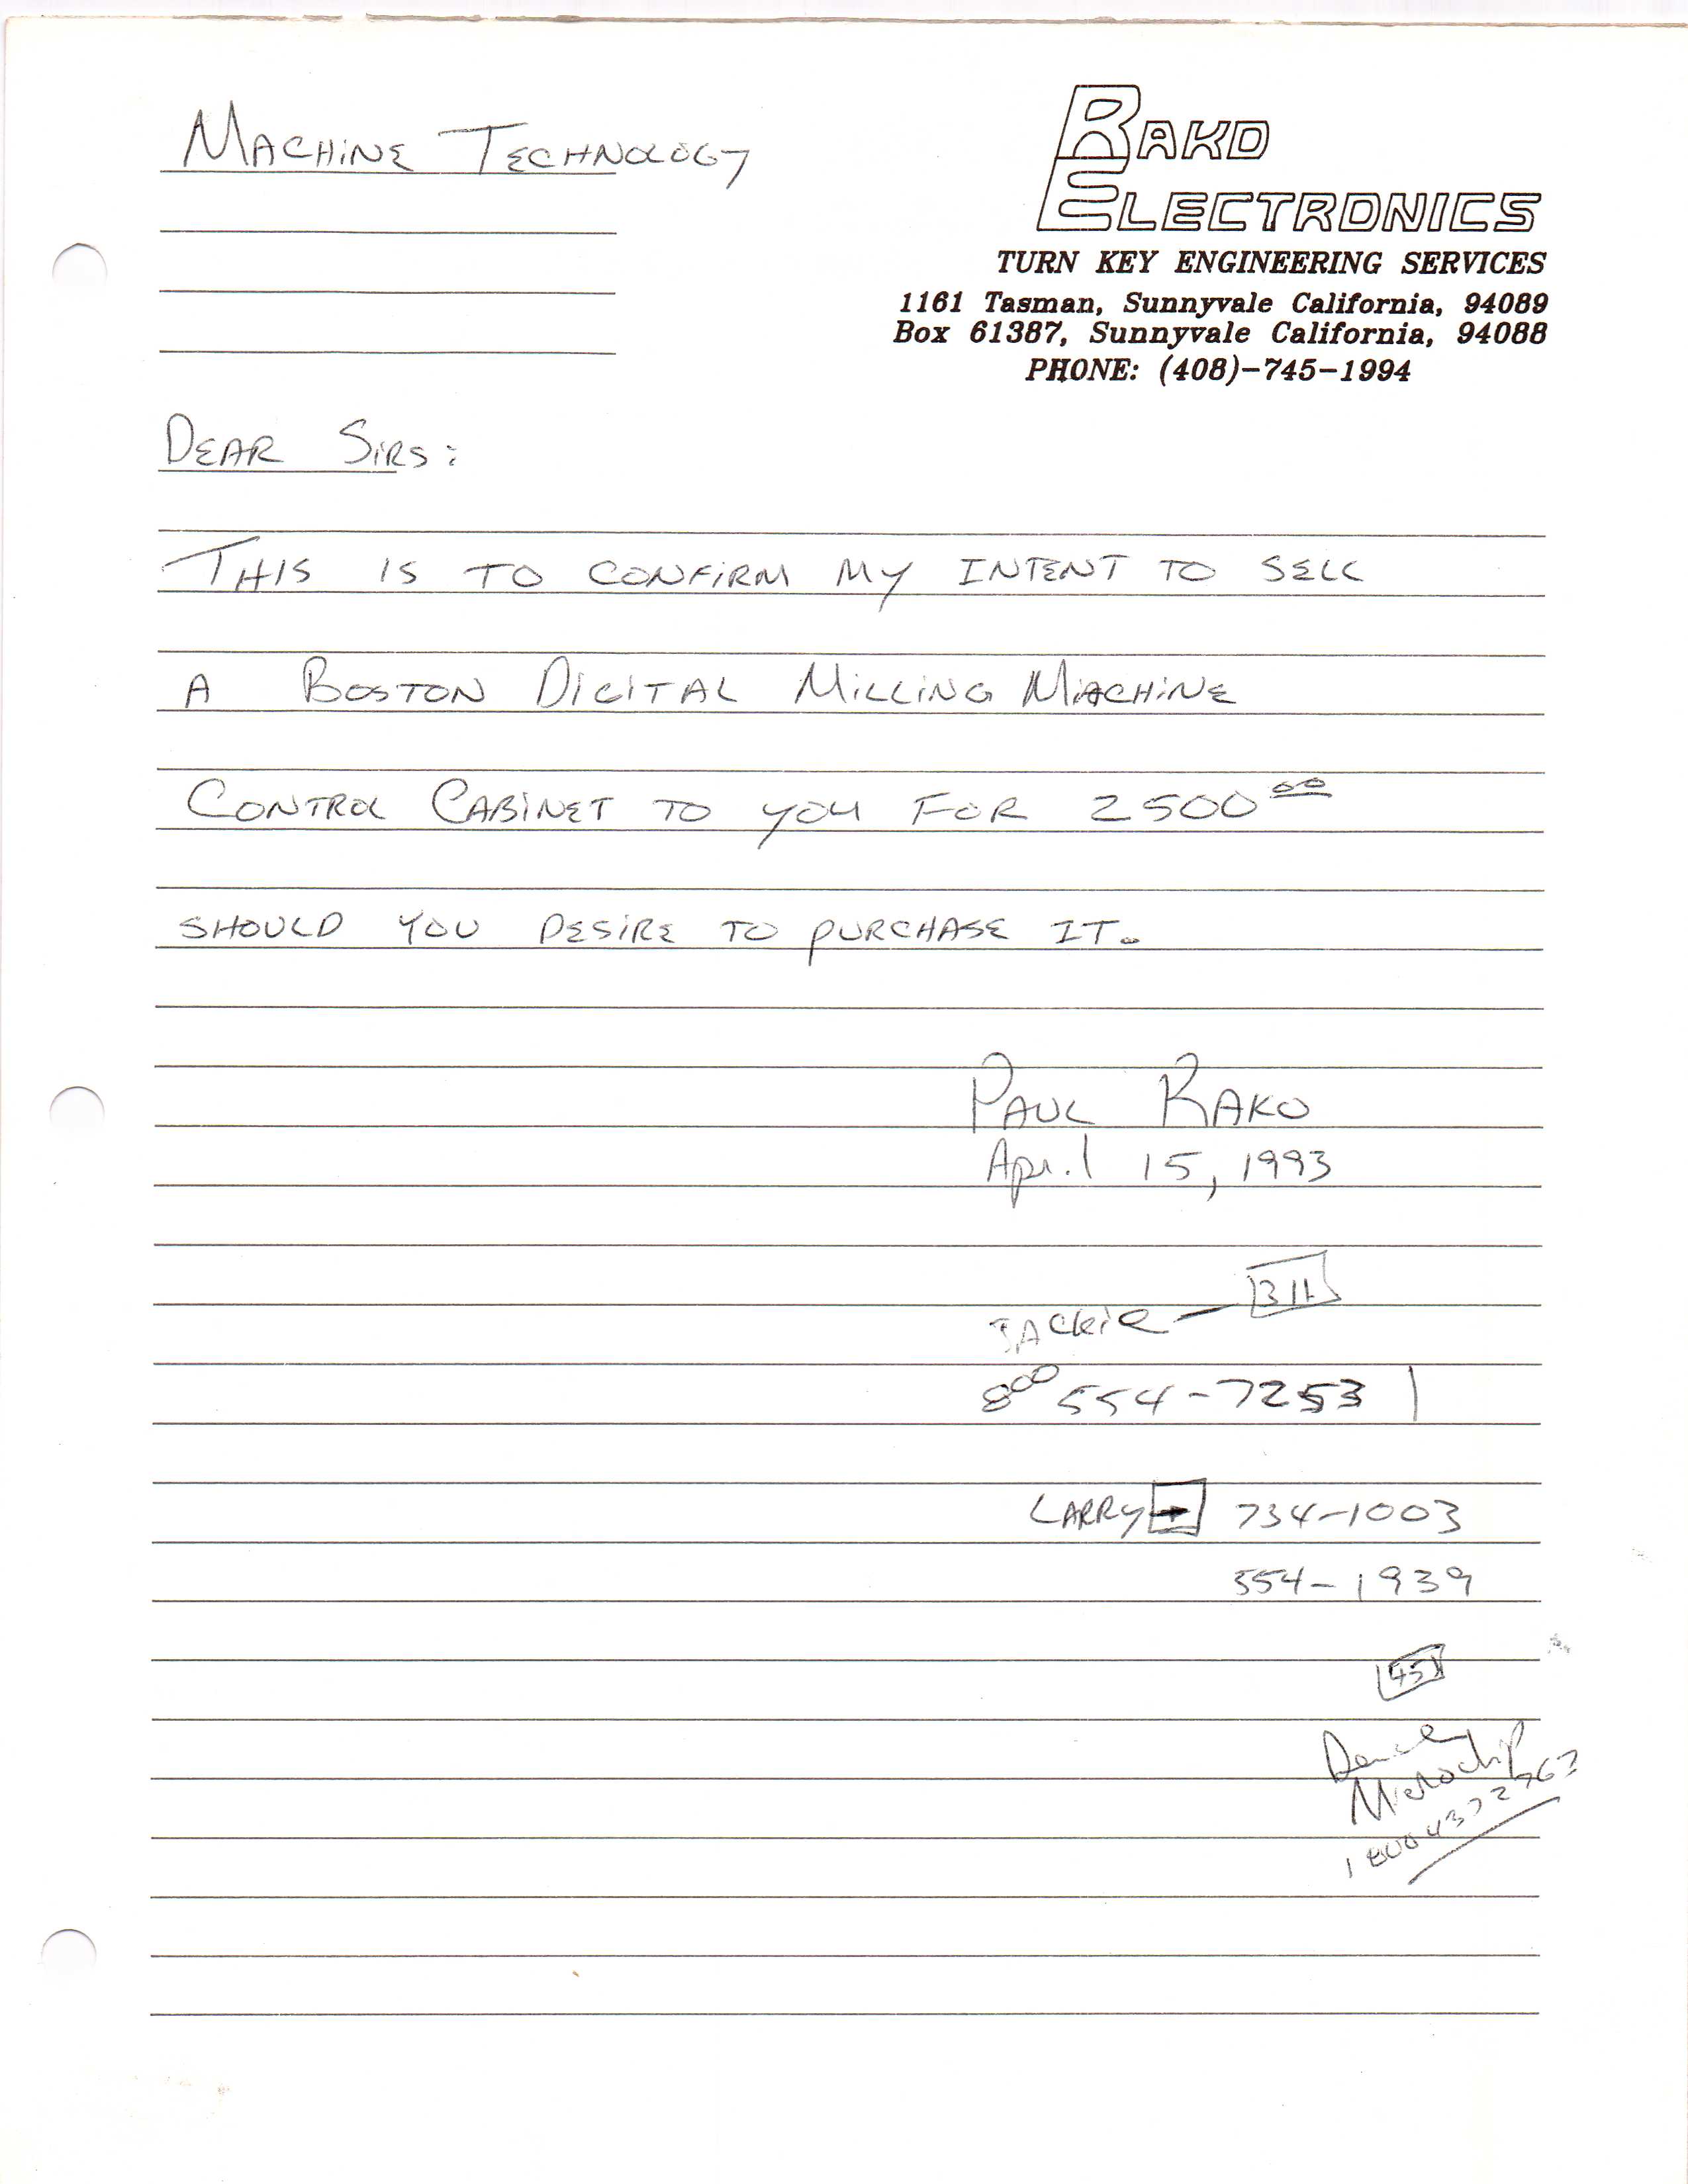 MACHINE TECHNOLOGY
RAKO
ELECTRONICS
TURN KEY ENGINEERING SERVICES
1161 Tasman, Sunnyvale California, 94089
Box 61387, Sunnyvale California, 94088
PHONE: (408)-745-1994
DEAR SIRS:
THIS IS TO CONFIRM MY INTENT TO SELL
A BOSTON DIGITAL MILLING MACHINE
CONTROL CABINET TO YOU FOR 2500 00
SHOULD YOU DESIRE TO PURCHASE IT.
PAUL RAKO
April 15, 1993
JACKIE —
800 554-7253
LARRY → 734-1003
554-1939
Microchip